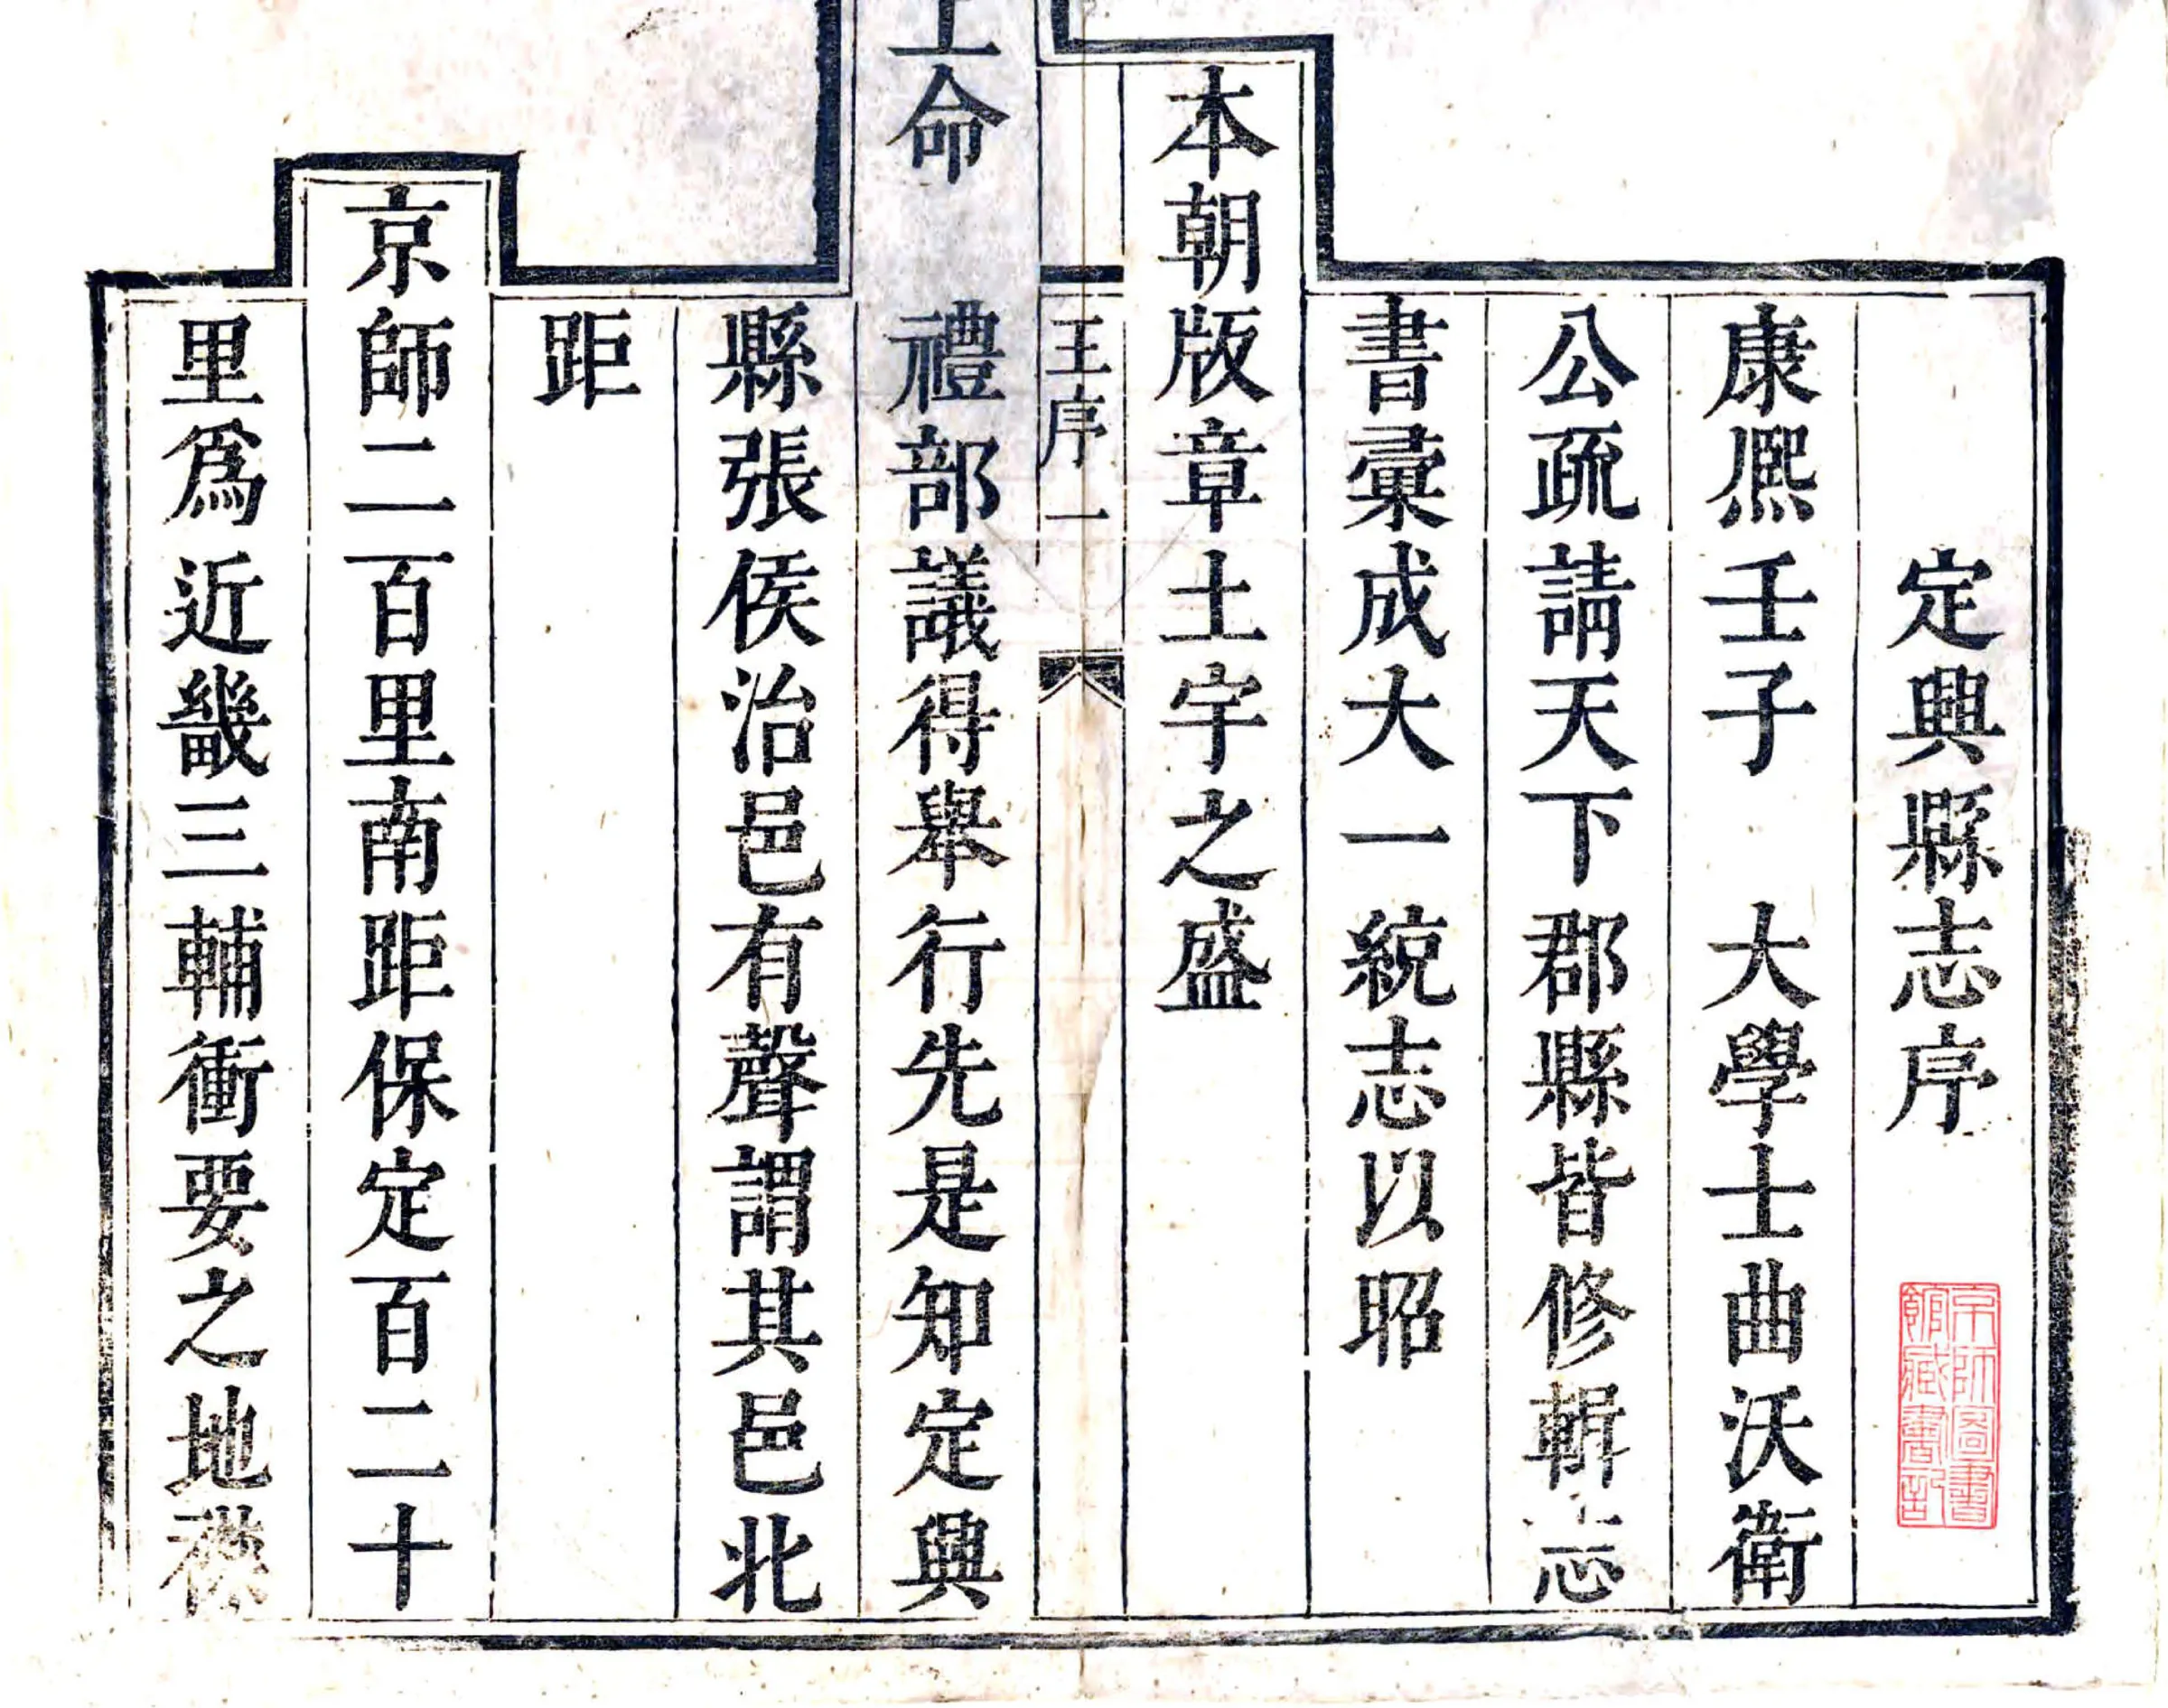 定興縣志序
京師圖書
館藏書記
康熙壬子 大學士曲沃衛
公疏請天下郡縣皆修輯志
書彚成大一統志以昭
本朝版章土宇之盛
王序 一
上命 禮部議得舉行先是知定興
縣張侯治邑有聲謂其邑北
距
京師二百里南距保定百二十
里爲近畿三輔衝要之地